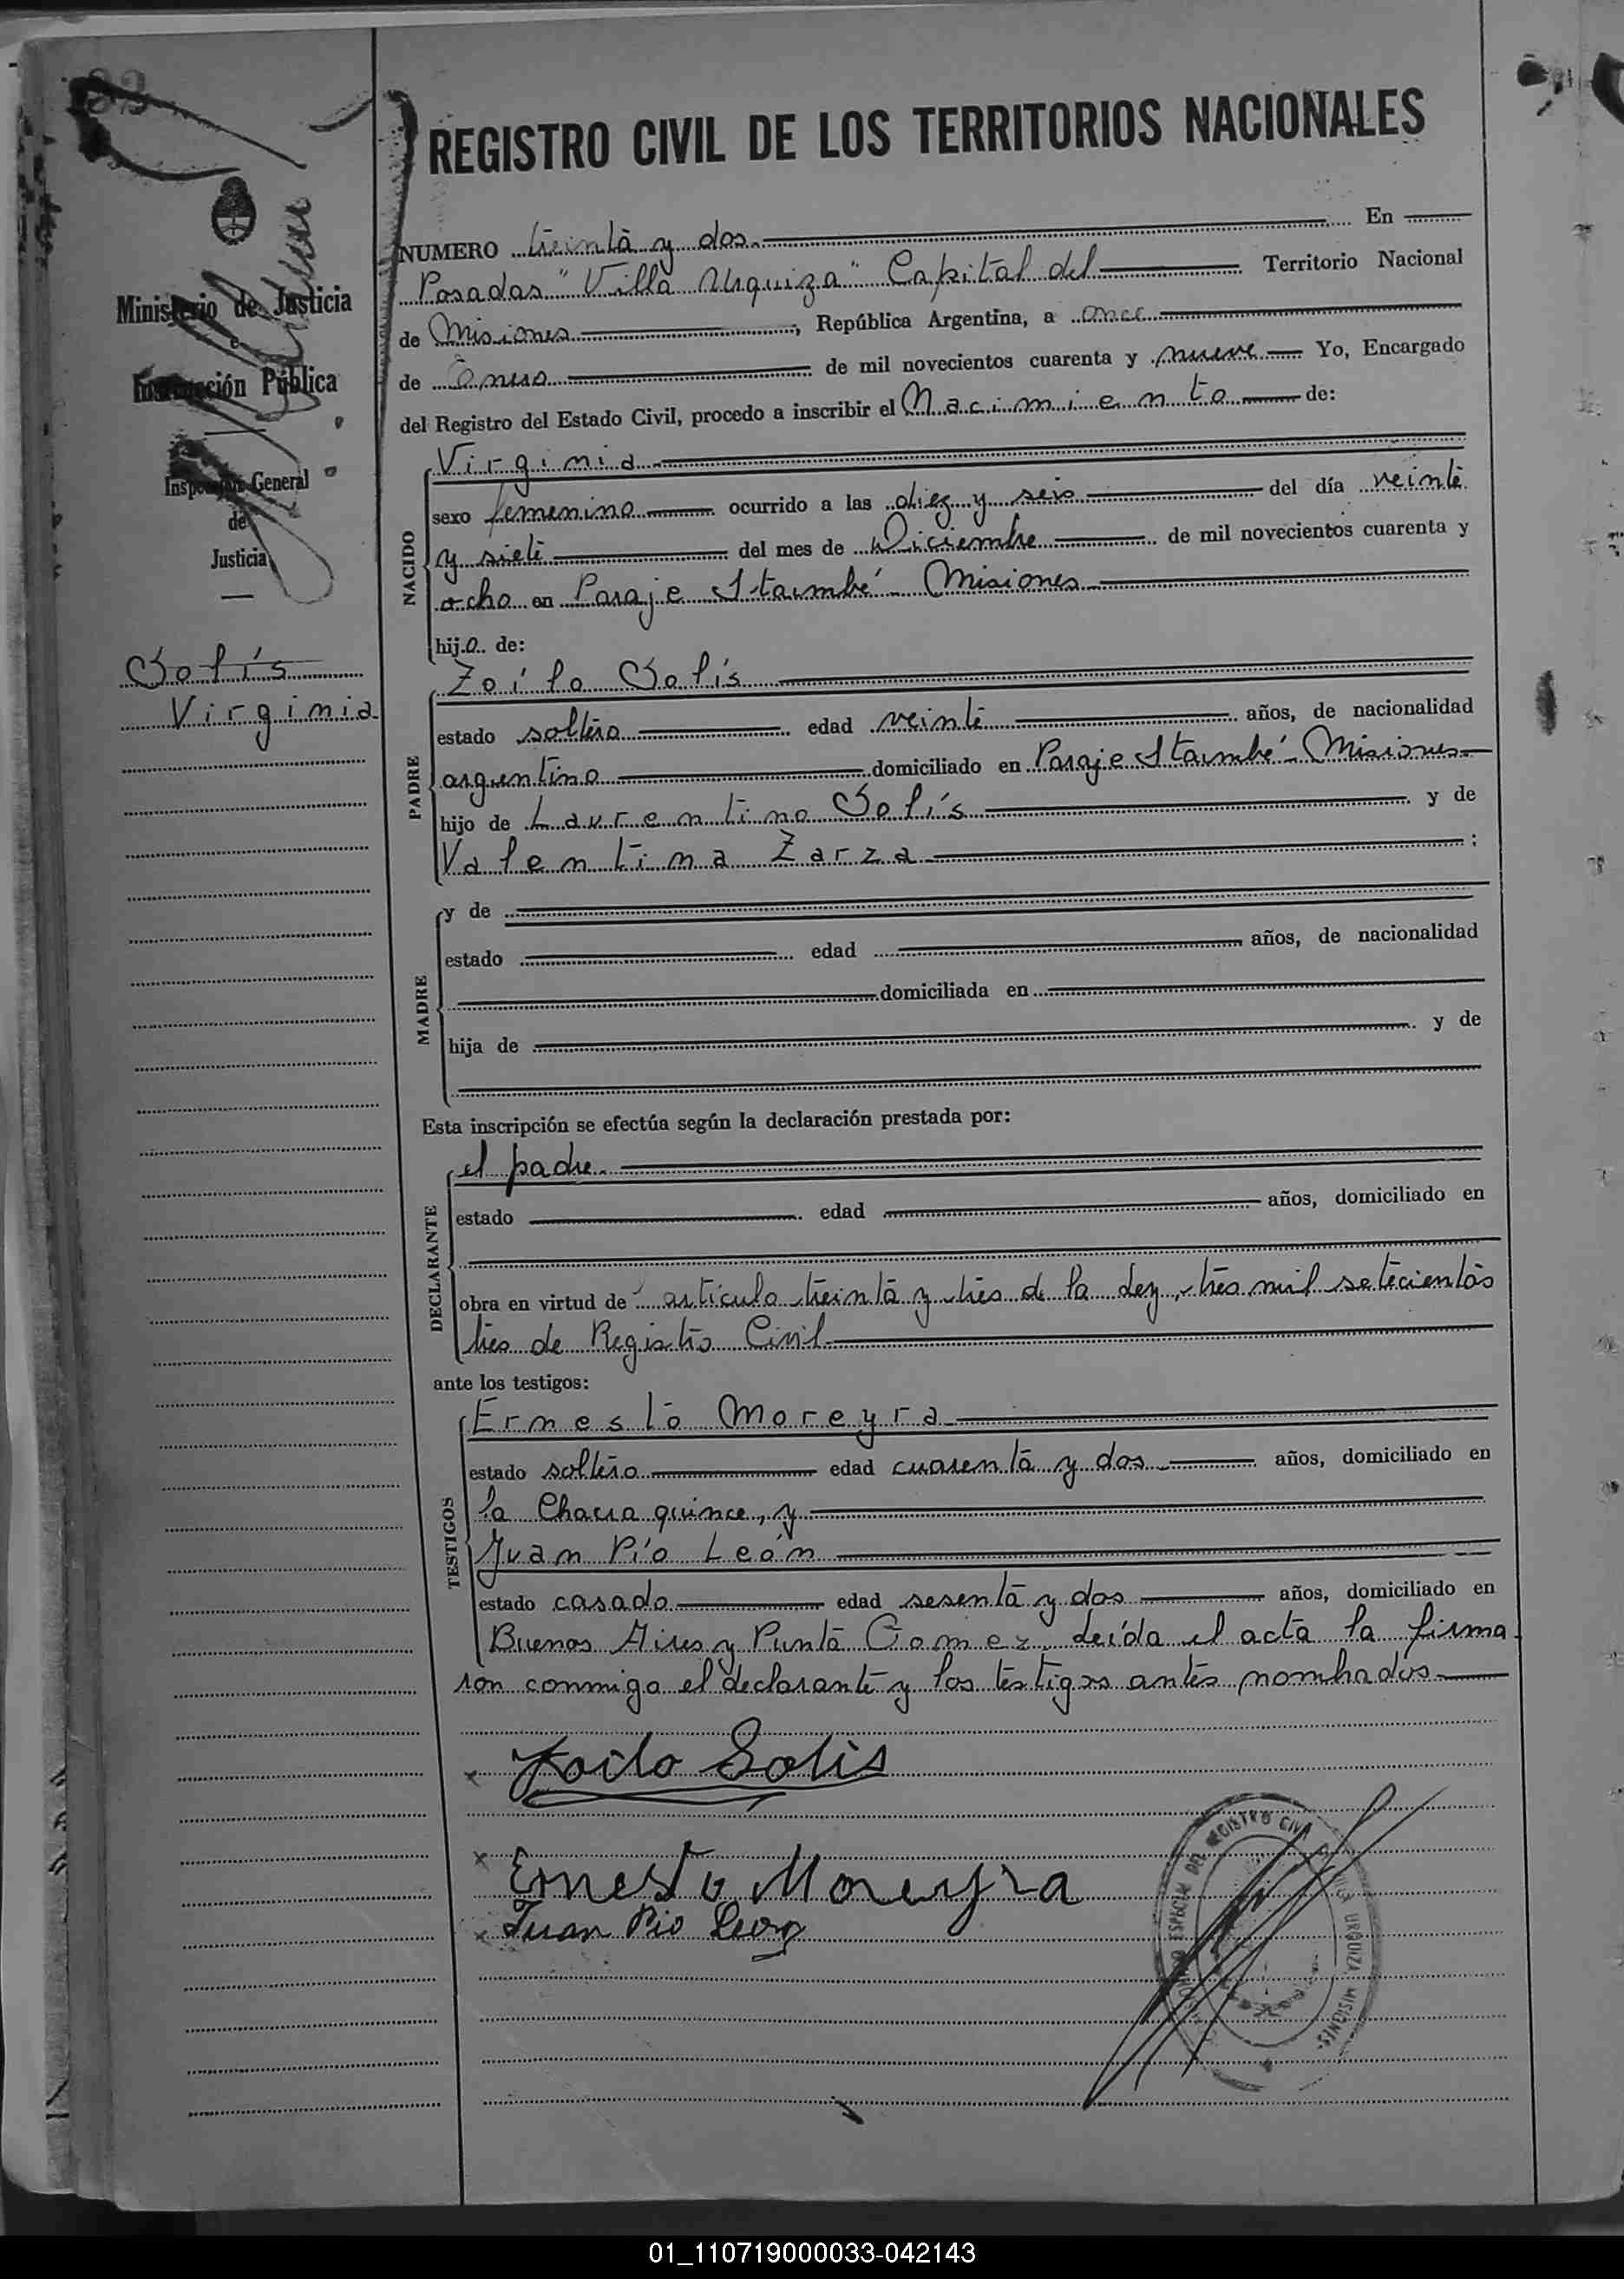 REGISTRO CIVIL DE LOS TERRITORIOS NACIONALES
Ministerio de Justicia
e
Instrucción Pública
Inspección General
de
Justicia
Solís
Virginia
NUMERO treinta y dos. En
Posadas "Villa Urquiza" Capital del Territorio Nacional
de Misiones, República Argentina, a once
de Enero de mil novecientos cuarenta y nueve Yo, Encargado
del Registro del Estado Civil, procedo a inscribir el Nacimiento de:
NACIDO
Virginia
sexo femenino ocurrido a las diez y seis del día veinte
y siete del mes de Diciembre de mil novecientos cuarenta y
ocho en Paraje Itaembé - Misiones
hija de:
PADRE
Zoilo Solís
estado soltero edad veinte años, de nacionalidad
argentino domiciliado en Paraje Itaembé - Misiones
hijo de Laurentino Solís y de
Valentina Zarza :
MADRE
y de
estado edad años, de nacionalidad
domiciliada en
hija de y de
Esta inscripción se efectúa según la declaración prestada por:
DECLARANTE
el padre.
estado edad años, domiciliado en
obra en virtud de articulo treinta y tres de la Ley tres mil setecientos
tres de Registro Civil
ante los testigos:
TESTIGOS
Ernesto Moreyra
estado soltero edad cuarenta y dos años, domiciliado en
la Chacra quince, y
Juan Pío León
estado casado edad sesenta y dos años, domiciliado en
Buenos Aires y Punta Gomez. Leída el acta la firma
ron conmigo el declarante y los testigos antes nombrados
Zoilo Solis
Ernesto Moreyra
Juan Pio Leon
DEL REGISTRO CIVIL VILLA URQUIZA MISIONES
01_110719000033-042143